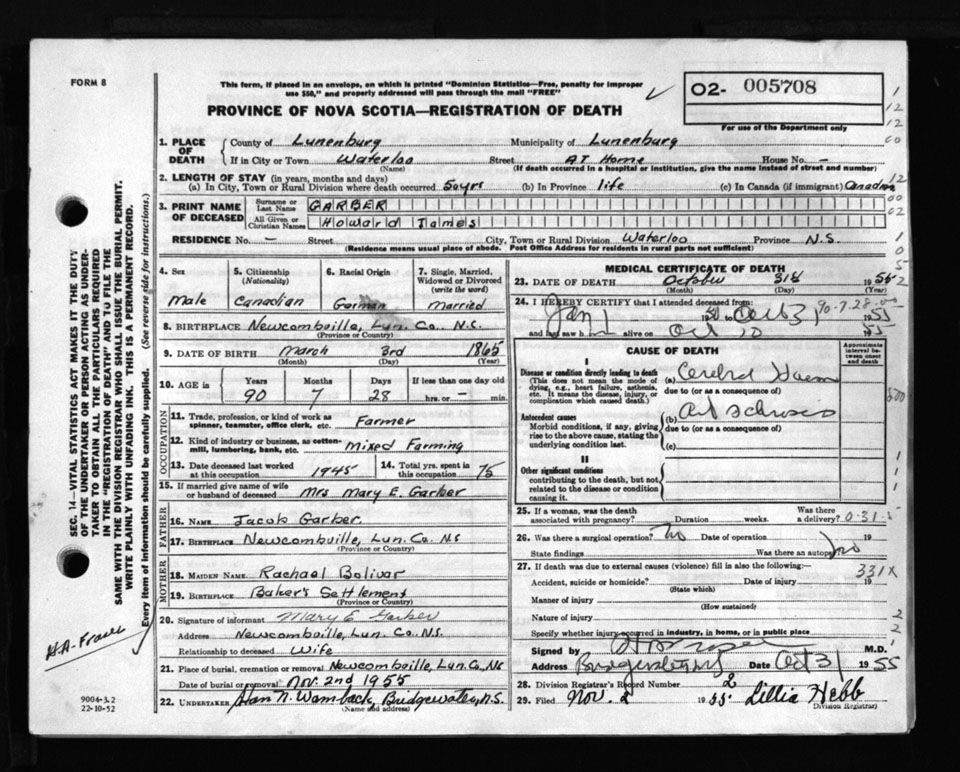 FORM 8
This form, if placed in an envelope, on which is printed "Dominion Statistics—Free, penalty for improper
use $50," and properly addressed will pass through the mail "FREE"
O2- 005708
For use of the Department only
PROVINCE OF NOVA SCOTIA—REGISTRATION OF DEATH
1. PLACE OF DEATH
County of Lunenburg Municipality of Lunenburg
If in City or Town Waterloo Street AT Home House No. –
(Name) (If death occurred in a hospital or institution, give the name instead of street and number)
2. LENGTH OF STAY (in years, months and days)
(a) In City, Town or Rural Division where death occurred 50yrs (b) In Province life (c) In Canada (if immigrant) Canadian
3. PRINT NAME OF DECEASED
Surname or Last Name GARBER
All Given or Christian Names Howard James
RESIDENCE No. – Street City, Town or Rural Division Waterloo Province N.S.
(Residence means usual place of abode. Post Office Address for residents in rural parts not sufficient)
4. Sex Male
5. Citizenship (Nationality) Canadian
6. Racial Origin German
7. Single, Married, Widowed or Divorced (write the word) Married
8. BIRTHPLACE Newcombville, Lun. Co., N.S.
(Province or Country)
9. DATE OF BIRTH March 3rd 1865
(Month) (Day) (Year)
10. AGE in Years Months Days If less than one day old
90 7 28 hrs. or – min.
OCCUPATION
11. Trade, profession, or kind of work as spinner, teamster, office clerk, etc. Farmer
12. Kind of industry or business, as cotton-mill, lumbering, bank, etc. Mixed Farming
13. Date deceased last worked at this occupation 1945
14. Total yrs. spent in this occupation 75
15. If married give name of wife or husband of deceased Mrs Mary E. Garber
FATHER
16. NAME Jacob Garber.
17. BIRTHPLACE Newcombville, Lun. Co. N.S
(Province or Country)
MOTHER
18. MAIDEN NAME Rachael Bolivar
19. BIRTHPLACE Baker's Settlement
(Province or Country)
20. Signature of informant Mary E Garber
Address Newcombville, Lun. Co., N.S.
Relationship to deceased Wife
21. Place of burial, cremation or removal Newcombville, Lun. Co, NS
Date of burial or removal Nov. 2nd 1955
22. UNDERTAKER N. Wamback, Bridgewater, N.S.
(Name and address)
MEDICAL CERTIFICATE OF DEATH
23. DATE OF DEATH October 31st 1955
(Month) (Day) (Year)
24. I HEREBY CERTIFY that I attended deceased from:
Jan 1 to Oct 31 1955
and last saw h alive on Oct 55
90-7-28-00
CAUSE OF DEATH
Approximate interval between onset and death
I
Disease or condition directly leading to death
(This does not mean the mode of dying, e.g., heart failure, asthenia, etc. It means the disease, injury, or complication which caused death.)
(a) Cerebral Haem
due to (or as a consequence of)
Antecedent causes
Morbid conditions, if any, giving rise to the above cause, stating the underlying condition last.
(b)
due to (or as a consequence of)
(c)
II
Other significant conditions
contributing to the death, but not related to the disease or condition causing it.
25. If a woman, was the death associated with pregnancy? Duration weeks. Was there a delivery?
26. Was there a surgical operation? No Date of operation 19
State findings Was there an autopsy no
27. If death was due to external causes (violence) fill in also the following:—
331X
Accident, suicide or homicide? Date of injury 19
(State which)
Manner of injury
(How sustained)
Nature of injury
Specify whether injury occurred in industry, in home, or in public place
Signed by M.D.
Address Date Oct 31 1955
28. Division Registrar's Record Number 2
29. Filed Nov. 2 1955 Lillia Hebb
Division Registrar
SEC. 14—VITAL STATISTICS ACT MAKES IT THE DUTY
OF THE UNDERTAKER OR PERSON ACTING AS UNDER-
TAKER TO OBTAIN ALL THE PARTICULARS REQUIRED
IN THE "REGISTRATION OF DEATH" AND TO FILE THE
SAME WITH THE DIVISION REGISTRAR WHO SHALL ISSUE THE BURIAL PERMIT.
WRITE PLAINLY WITH UNFADING INK. THIS IS A PERMANENT RECORD.
Every item of information should be carefully supplied. (See reverse side for instructions.)
9004-3.2
22-10-52